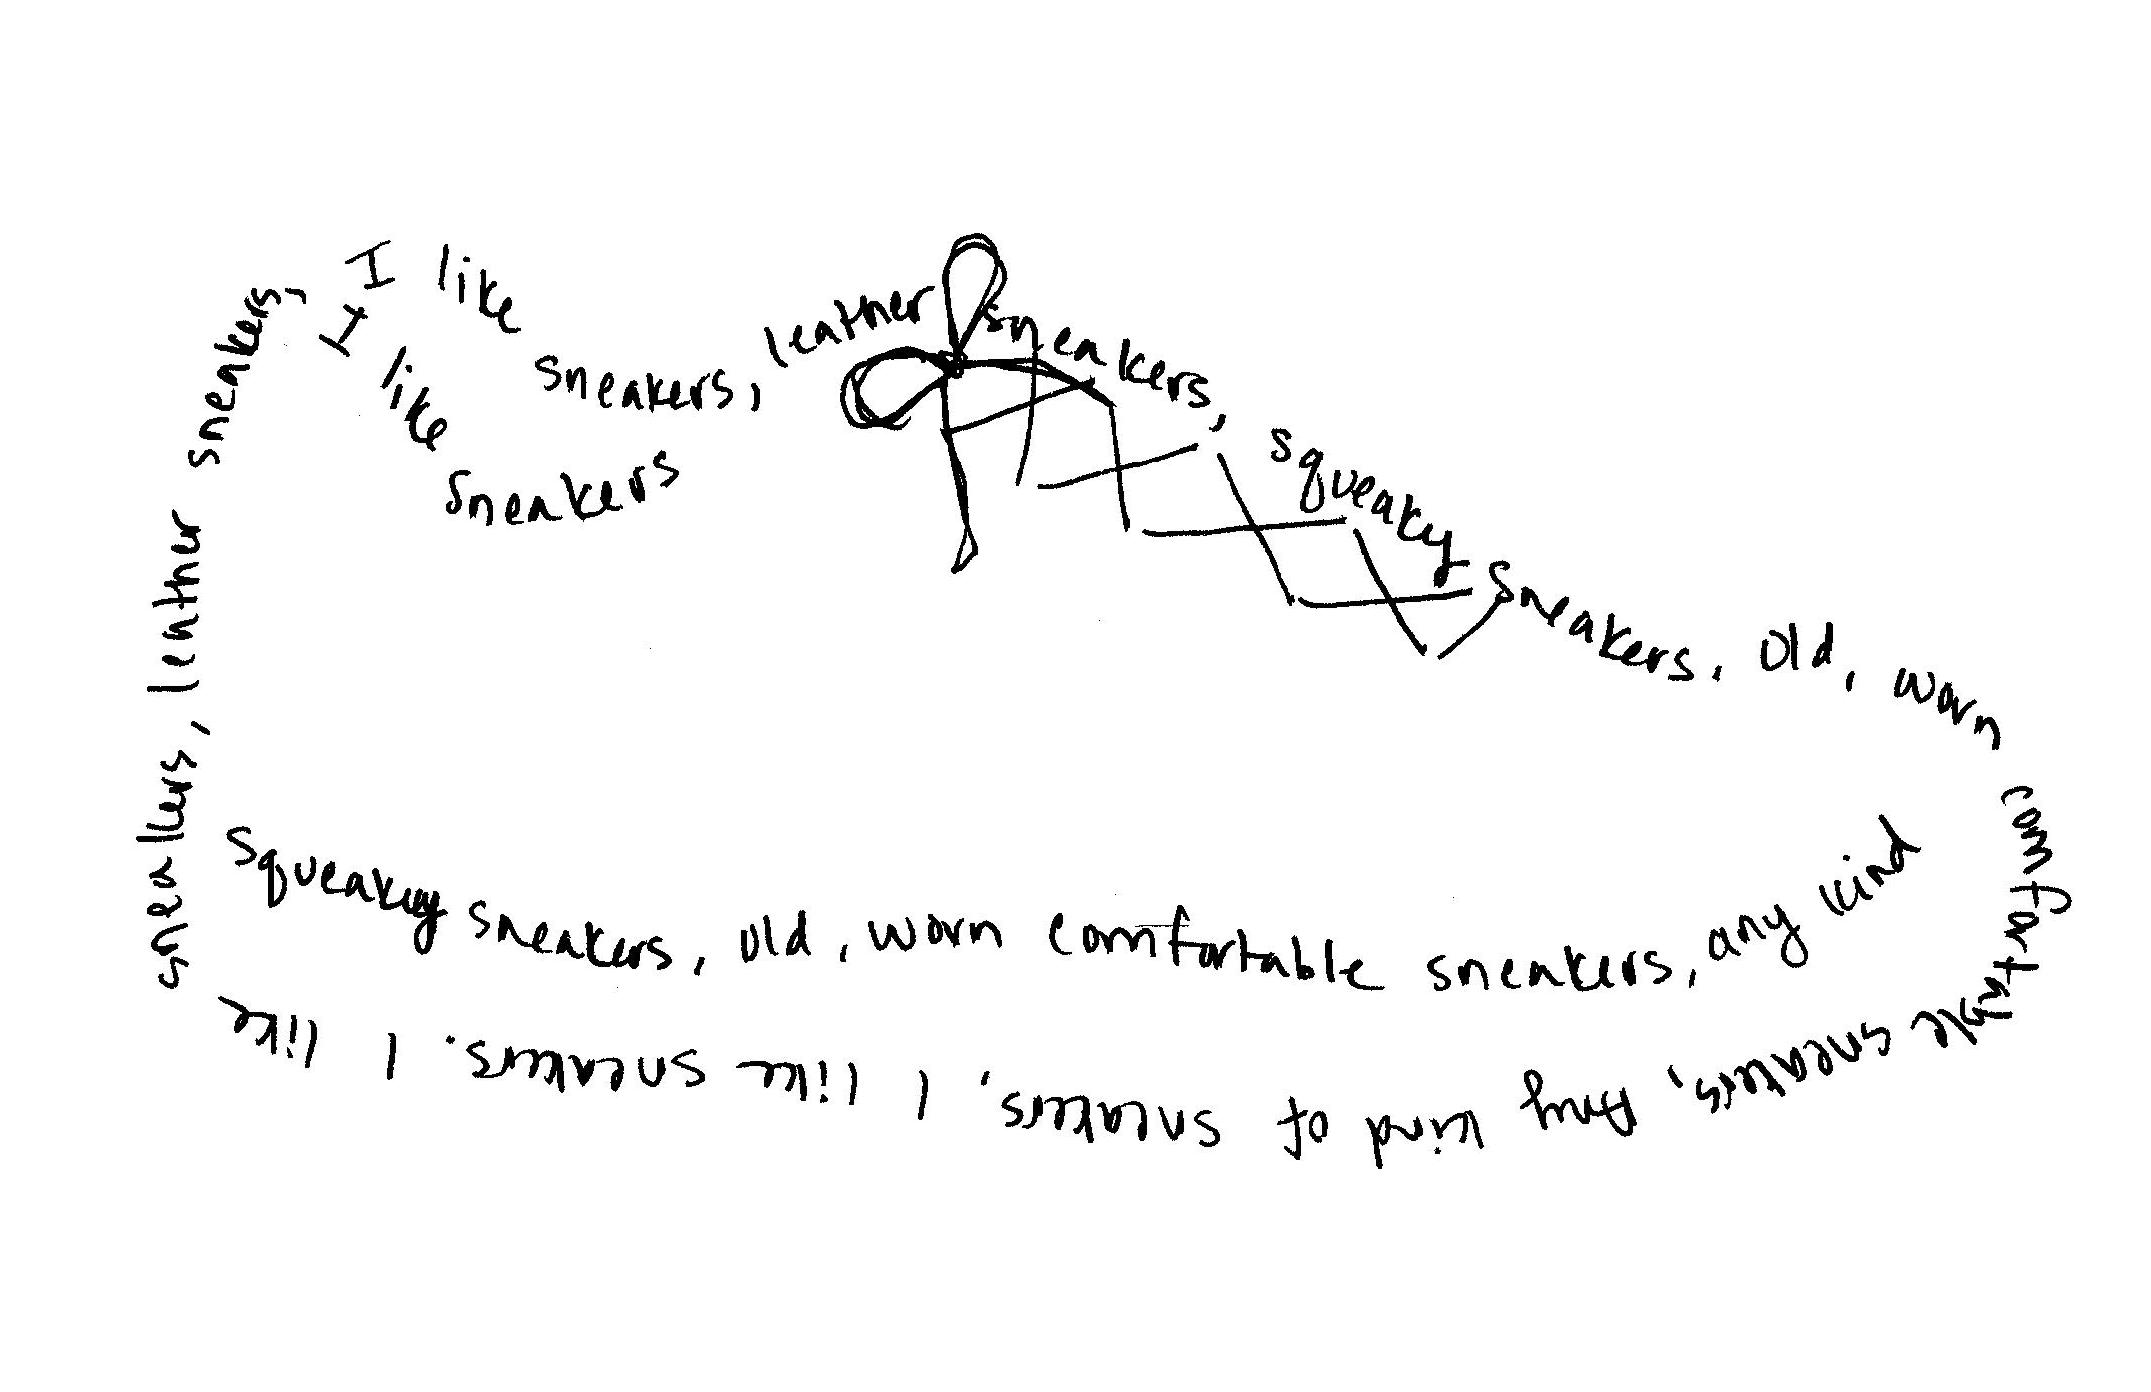 I like sneakers, leather sneakers, squeaky sneakers, old, worn comfortable sneakers, Any kind of sneakers, I like sneakers. I like sneakers, leather sneakers,
I like sneakers
squeaky sneakers, old, worn comfortable sneakers, any kind